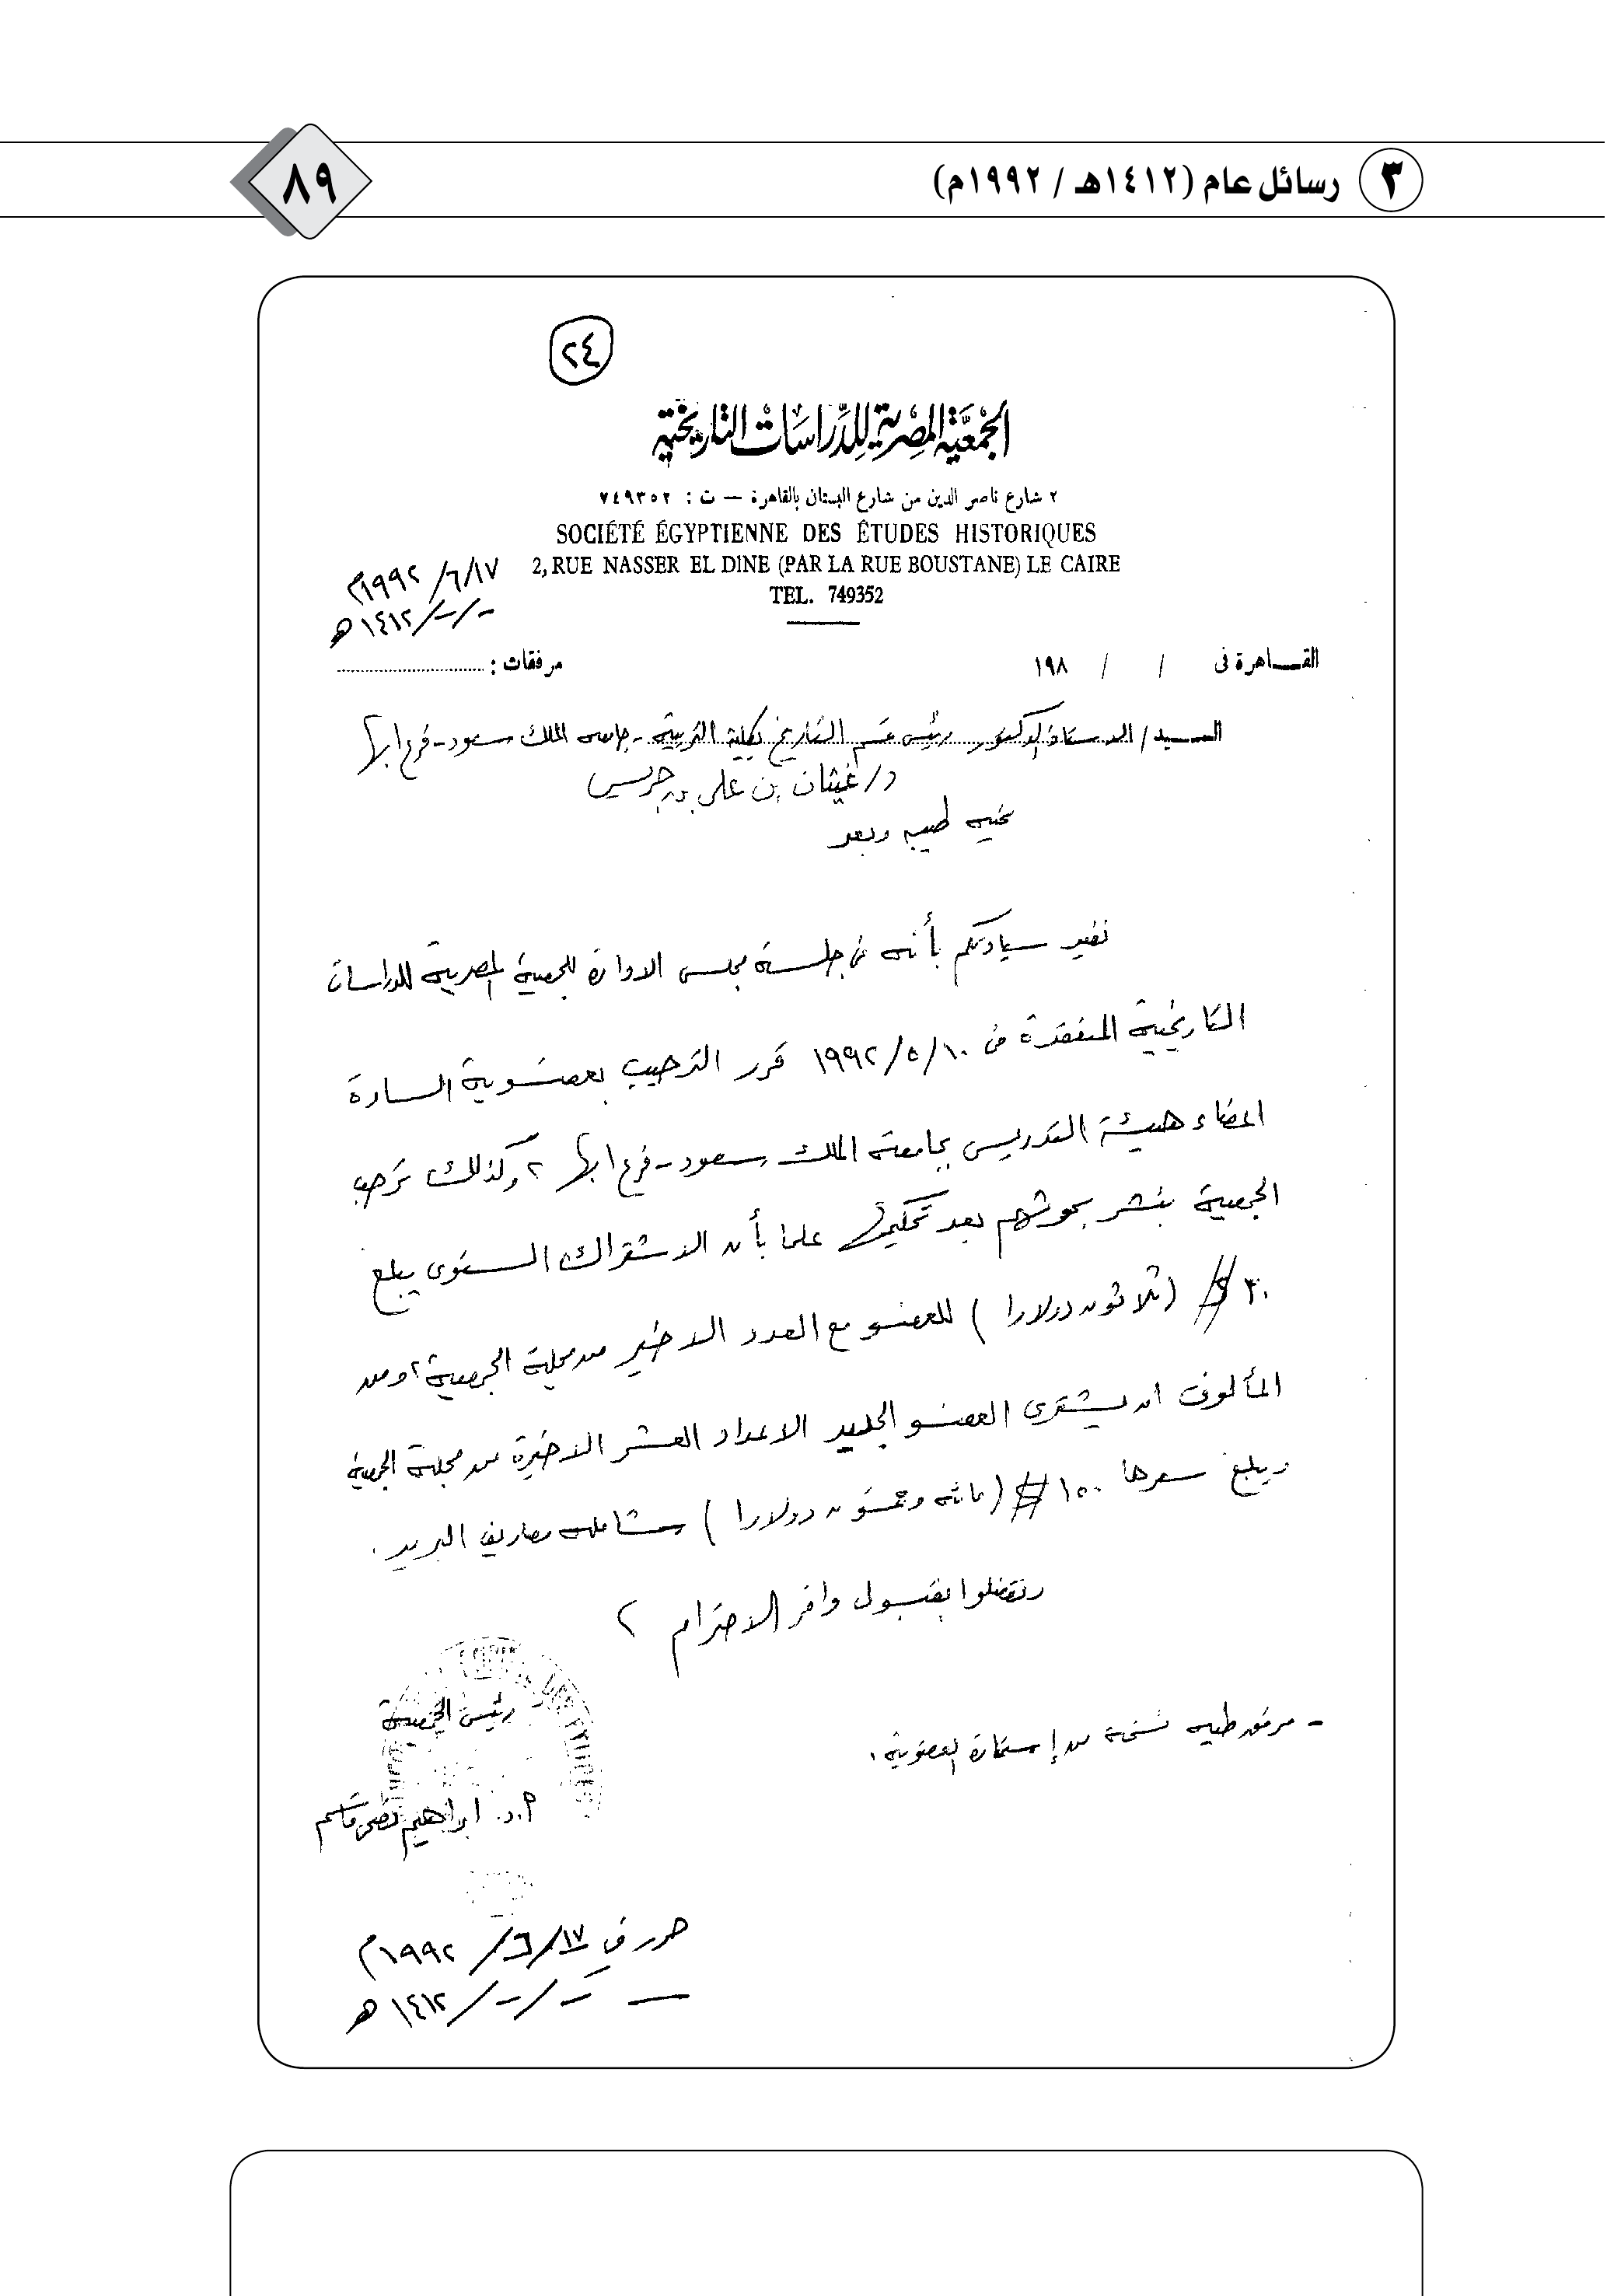 ٣ رسائل عام (١٤١٢هـ / ١٩٩٢م)
٨٩
٢٤
الجمعية المصرية للدراسات التاريخية
٢ شارع ناصر الدين من شارع البستان بالقاهرة — ت : ٧٤٩٣٥٢
SOCIÉTÉ ÉGYPTIENNE DES ÉTUDES HISTORIQUES
2, RUE NASSER EL DINE (PAR LA RUE BOUSTANE) LE CAIRE
TEL. 749352
١٩٩٢/٦/١٧م
-/-/١٤١٢هـ
القاهرة فى / / ١٩٨
مرفقات :
السيد / الاستاذ الدكتور رئيس قسم التاريخ بكلية التربية - جامعة الملك سعود - فرع ابها
د/ غيثان بن علي بن جريس
تحية طيبة وبعد
نفيد سيادتكم بأنه فى جلسة مجلس الادارة للجمعية المصرية للدراسات
التاريخية المنعقدة فى ١٩٩٢/٥/١٠ قرر الترحيب بعضوية السادة
اعضاء هيئة التدريس بجامعة الملك سعود - فرع ابها ، وكذلك ترحب
الجمعية بنشر بحوثهم بعد تحكيمها علما بأن الاشتراك السنوى يبلغ
٣٠ $ (ثلاثون دولارا) للعضو مع العدد الاخير من مجلة الجمعية ، ومن
المألوف ان يشترى العضو الجديد الاعداد العشر الاخيرة من مجلة الجمعية
ويبلغ سعرها ١٥٠ $ (مائه وخمسون دولارا) شامله مصاريف البريد .
وتفضلوا بقبول وافر الاحترام ،
رئيس الجمعية
- مرفق طيه نسخة من إستمارة العضوية .
أ.د. ابراهيم نصحى قاسم
حرر في ١٩٩٢/٦/١٧م
-/-/١٤١٢هـ